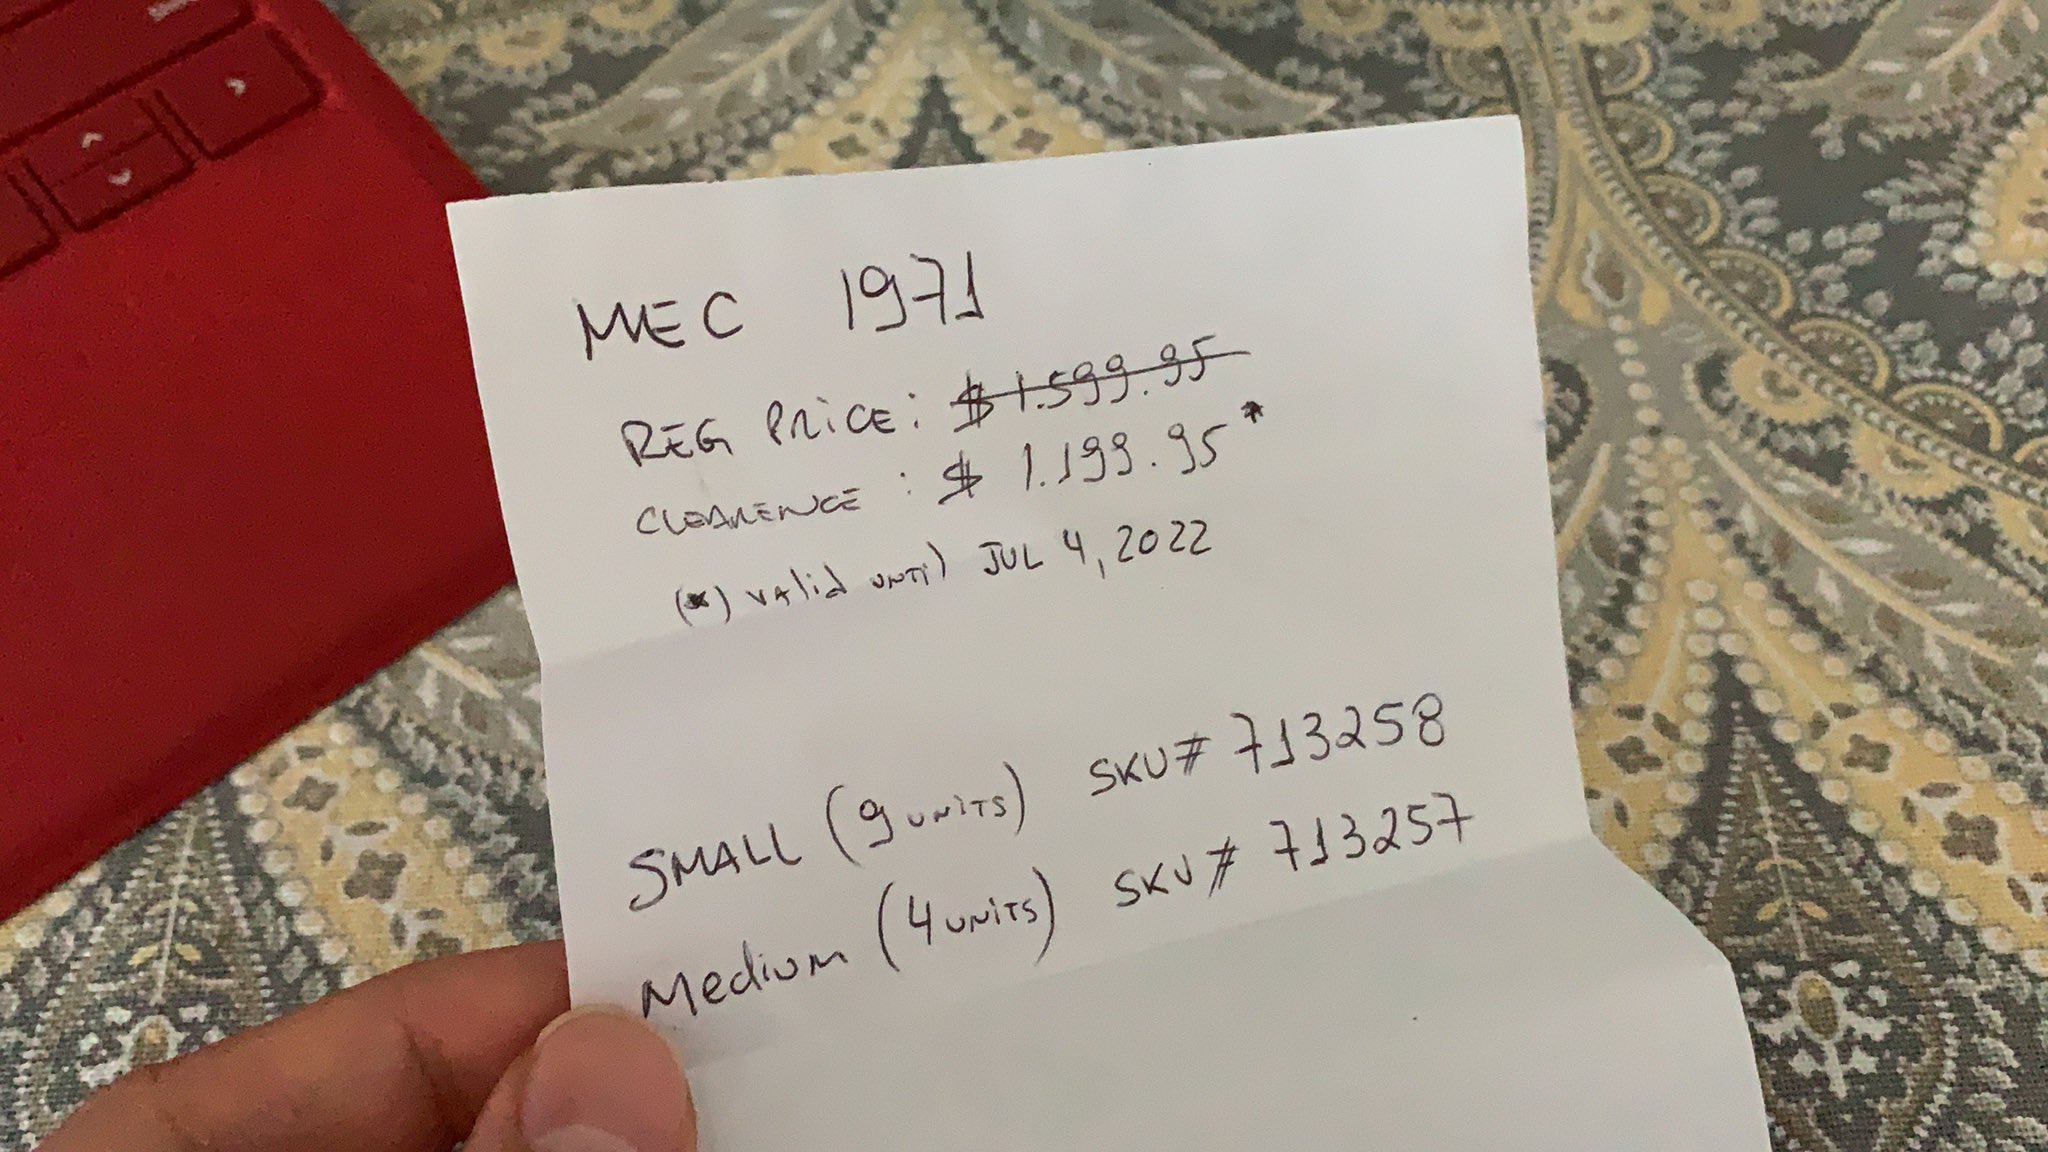 MEC 1971
REG PRiCE: $ 1.599.95
CLEARENCE : $ 1.199.95*
(*) VALid UNTil JUL 4, 2022
SMALL (9 UNiTS) SKU# 713258
Medium (4 UNiTS) SKU# 713257